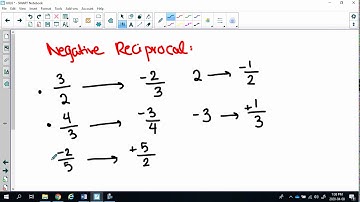 Negative Reciprocal:
• 3/2 → -2/3 2 → -1/2
• 4/3 → -3/4 -3 → +1/3
-2/5 → +5/2